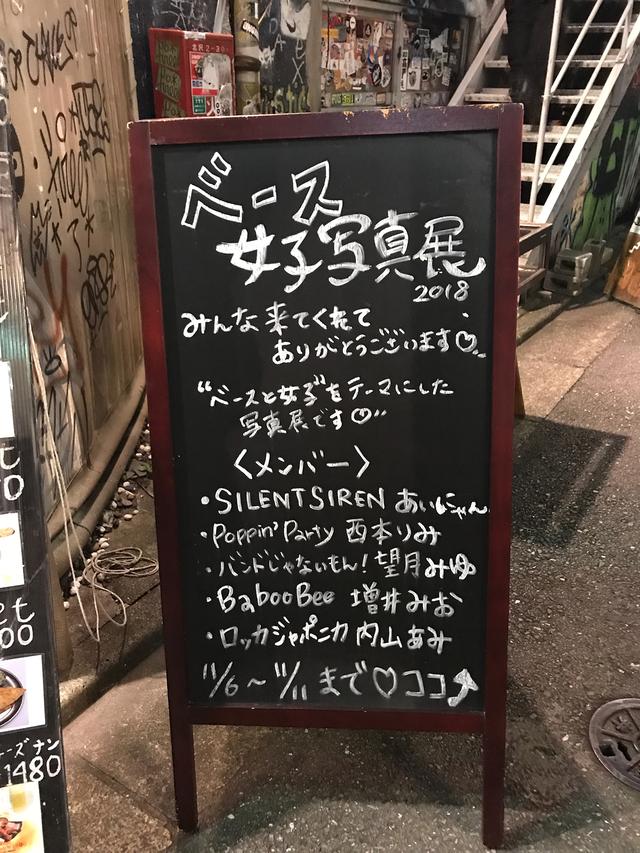 北沢2-3
ベース
女子写真展
2018
みんな来てくれて
ありがとうございます♡
"ベースと女子"をテーマにした
写真展です♡"
〈メンバー〉
・SILENT SIREN あいにゃん
・Poppin'Party 西本りみ
・バンドじゃないもん! 望月みゆ
・BabooBee 増井みお
・ロッカジャポニカ 内山あみ
11/6〜11/11まで♡ココ↗
ーズナン
1480